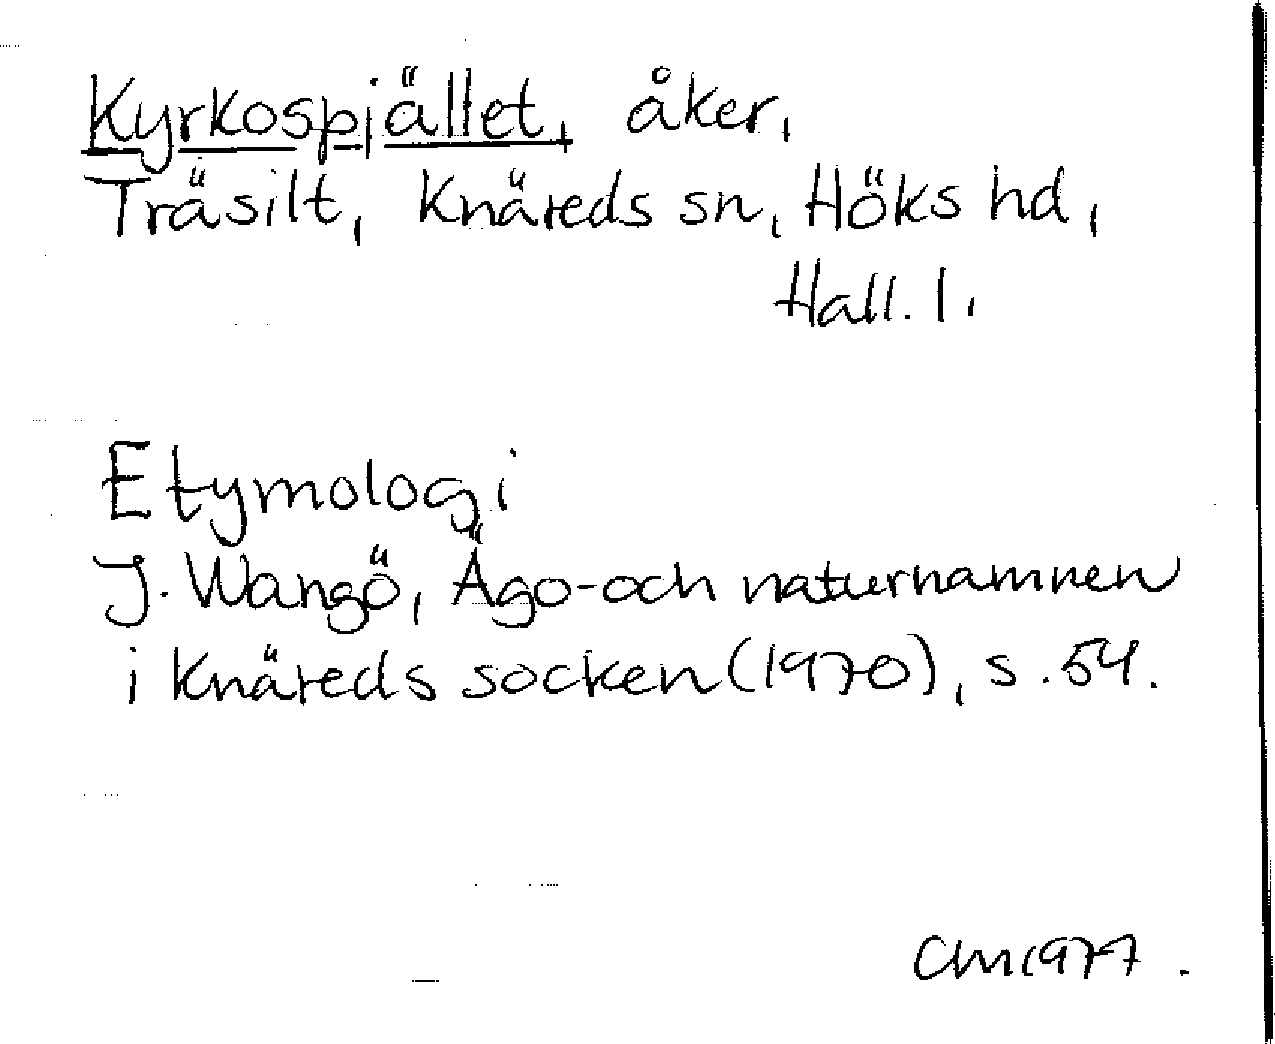 Kyrkospjället, åker,
Träsilt, Knäreds sn, Höks hd,
Hall. l.
Etymologi
J. Wangö, Ägo- och naturnamnen
i Knäreds socken (1970), s. 54.
CM 1977.